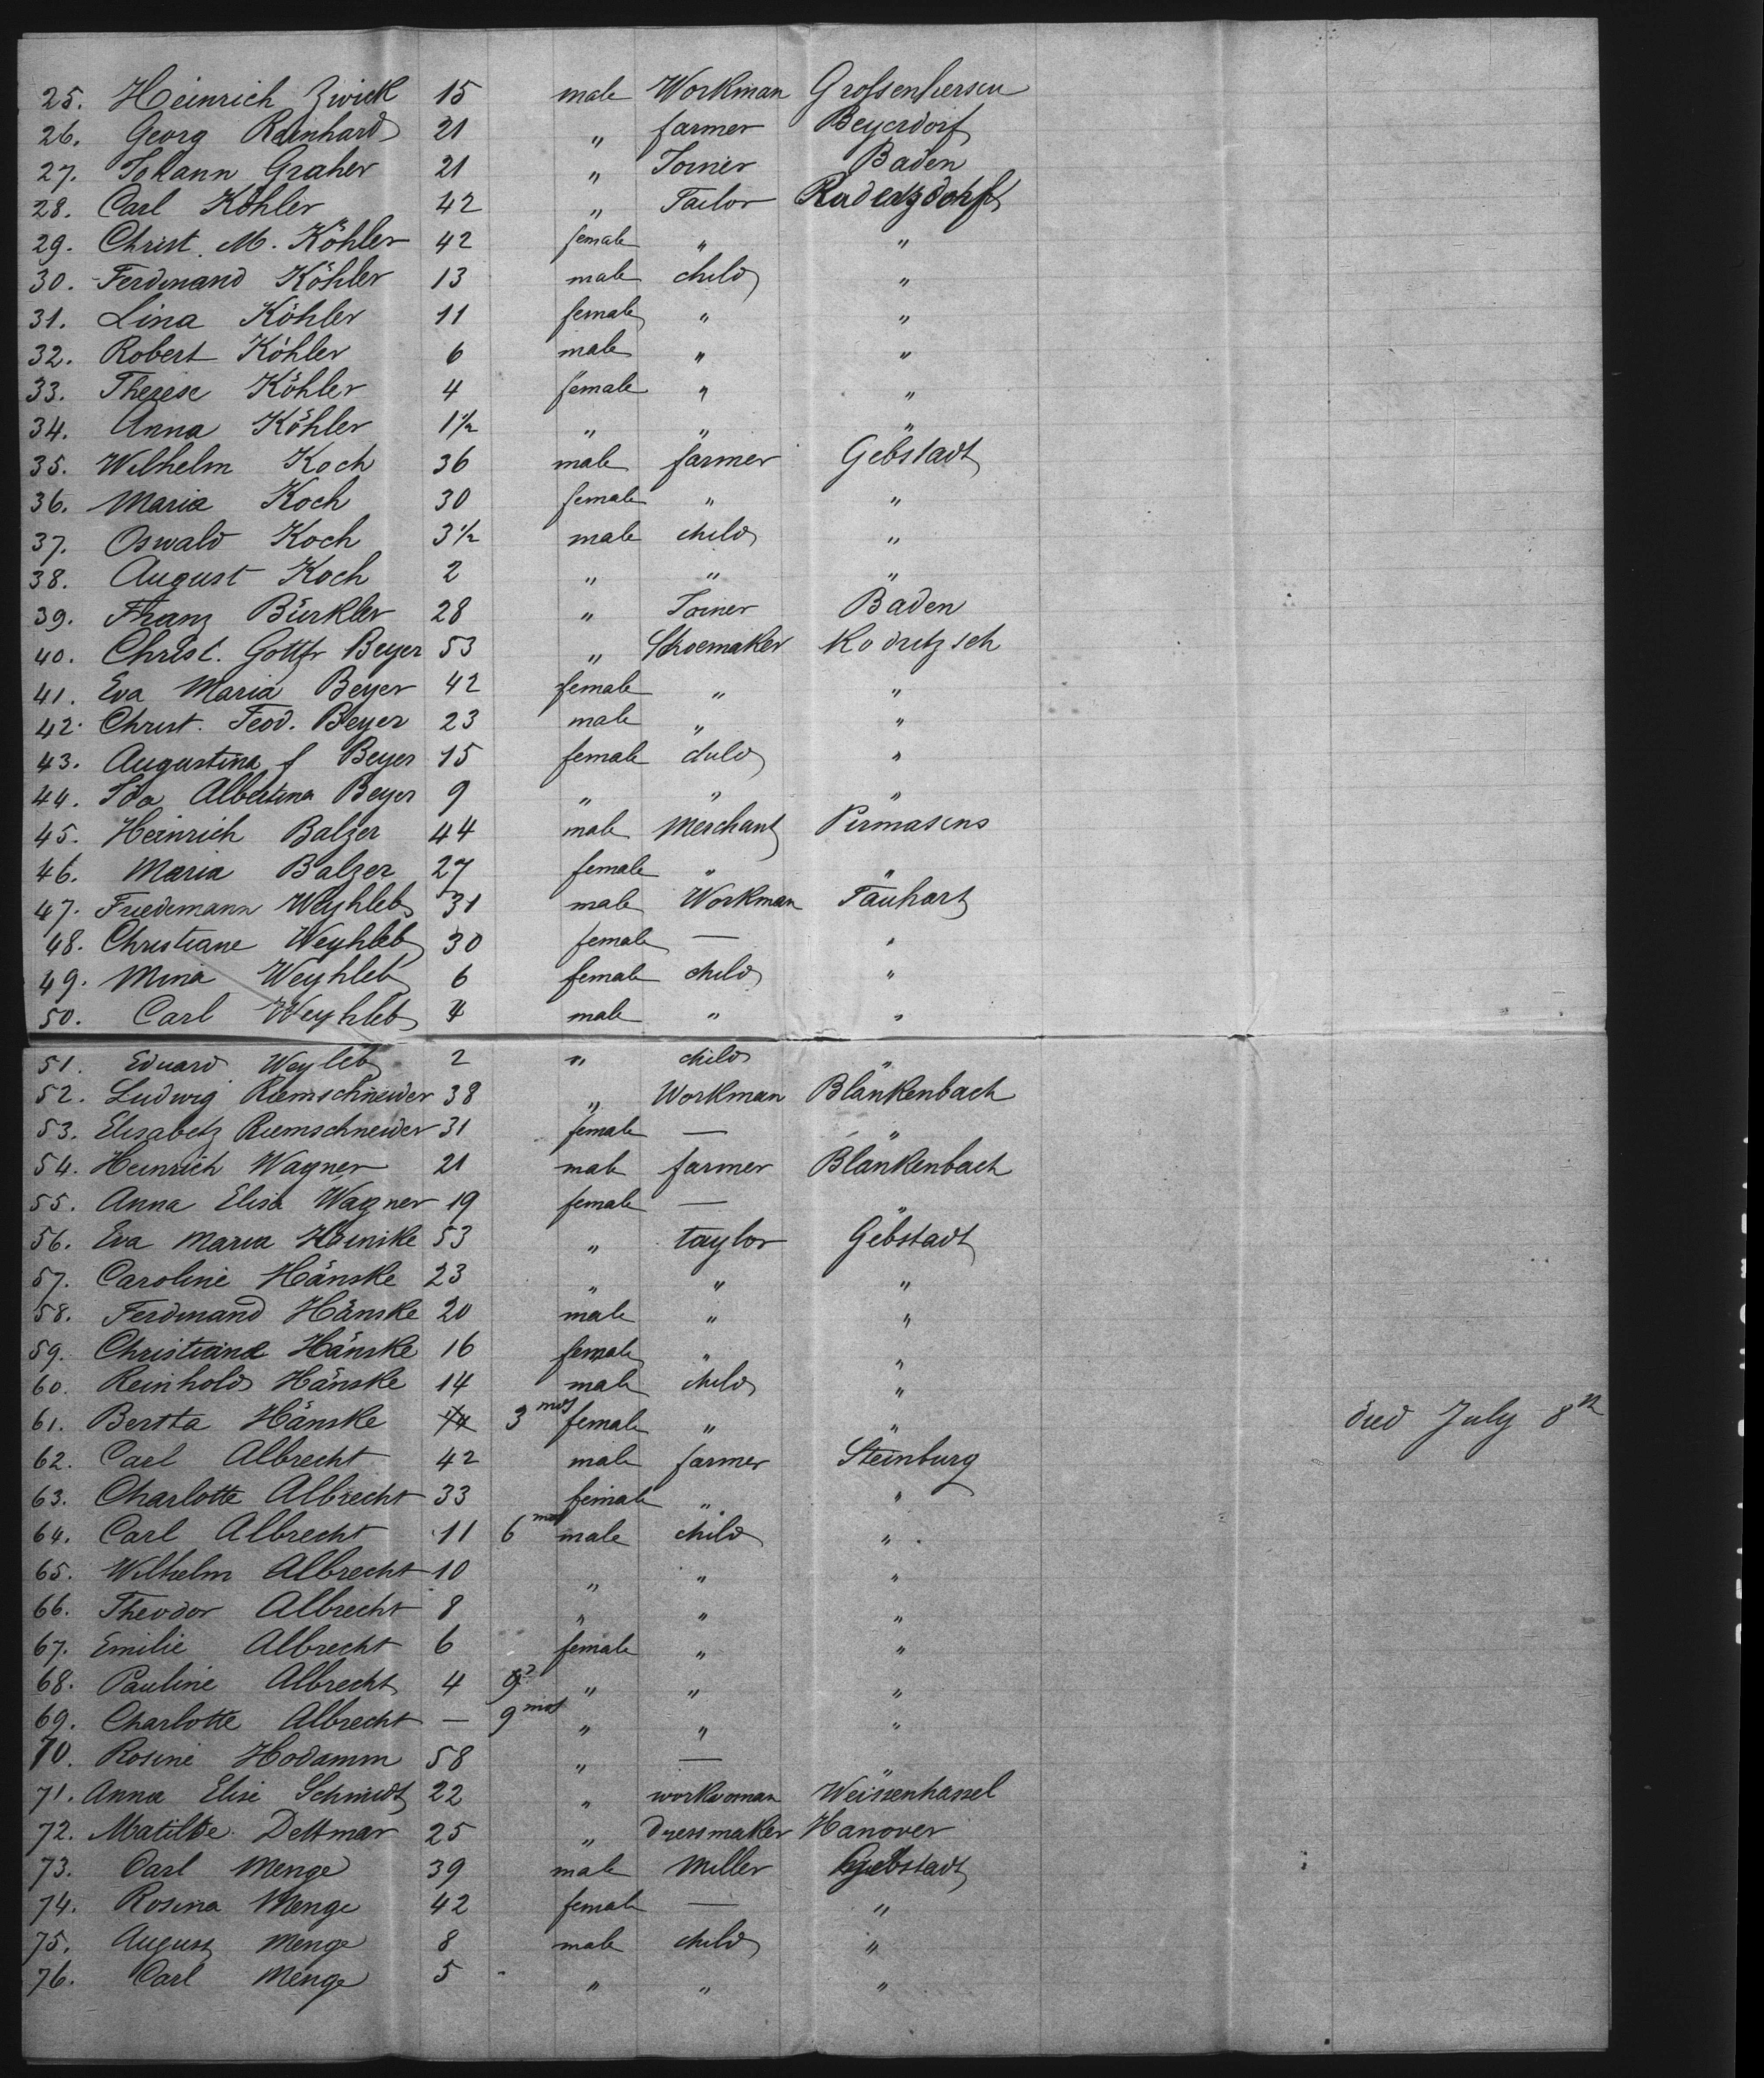 25. Heinrich Zwick 15 male Workman Grossenhersen
26. Georg Reinhard 21 " farmer Beyerdorf
27. Johann Graher 21 " Joiner Baden
28. Carl Köhler 42 " Tailor
29. Christ. M. Köhler 42 female " "
30. Ferdinand Köhler 13 male child "
31. Lina Köhler 11 female " "
32. Robert Köhler 6 male " "
33. Therese Köhler 4 female " "
34. Anna Köhler 1½ " " "
35. Wilhelm Koch 36 male farmer Gebstadt
36. Maria Koch 30 female " "
37. Oswald Koch 3½ male child "
38. August Koch 2 " " "
39. Franz Bürkler 28 " Joiner Baden
40. Christ. Gottfr Beyer 53 " Shoemaker Kodritzsch
41. Eva Maria Beyer 42 female " "
42. Christ. Feod. Beyer 23 male " "
43. Augustina f Beyer 15 female child "
44. Ida Albertina Beyer 9 " " "
45. Heinrich Balzer 44 male Merchant Pirmasens
46. Maria Balzer 27 female " "
47. Friedemann Weyhleb 31 male Workman Tauhart
48. Christiane Weyhleb 30 female — "
49. Mina Weyhleb 6 female child "
50. Carl Weyhleb 4 male " "
51. Eduard Weyleb 2 " child "
52. Ludwig Riemschneider 38 " Workman Blankenbach
53. Elisabetz Riemschneider 31 female — "
54. Heinrich Wagner 21 male farmer Blankenbach
55. Anna Elisa Wagner 19 female — "
56. Eva Maria 53 " taylor Gebstadt
57. Caroline Hänske 23 " " "
58. Ferdinand Hänske 20 male " "
59. Christiane Hänske 16 female " "
60. Reinhold Hänske 14 male child "
61. Bertta Hänske 3 mos female " " died July 8th
62. Carl Albrecht 42 male farmer Steinburg
63. Charlotte Albrecht 33 female " "
64. Carl Albrecht 11 6 mos male child "
65. Wilhelm Albrecht 10 " " "
66. Theodor Albrecht 8 " " "
67. Emilie Albrecht 6 female " "
68. Pauline Albrecht 4 " " "
69. Charlotte Albrecht — 9 mos " " "
70. Rosine Hodamm 58 " — "
71. Anna Elise Schmidt 22 " workwoman Weissenhassel
72. Matilde Dettmar 25 " Dressmaker Hanover
73. Carl Menge 39 male Miller Gebstadt
74. Rosina Menge 42 female — "
75. August Menge 8 male child "
76. Carl Menge 5 " " "